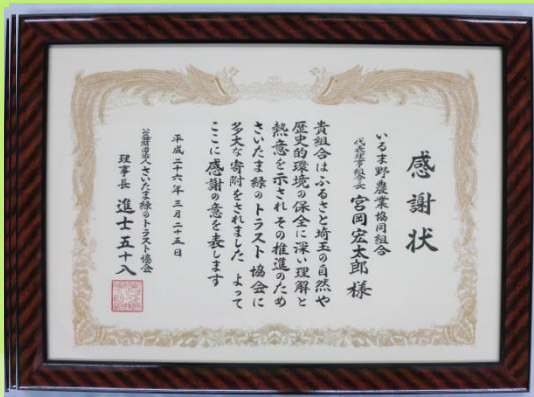 感謝状
いるま野農業協同組合
代表理事組合長 宮岡宏太郎 様
貴組合はふるさと埼玉の自然や
歴史的環境の保全に深い理解と
熱意を示されその推進のため
さいたま緑のトラスト協会に
多大な寄附をされました よって
ここに感謝の意を表します
平成二十六年三月二十五日
公益財団法人さいたま緑のトラスト協会
理事長 進士五十八